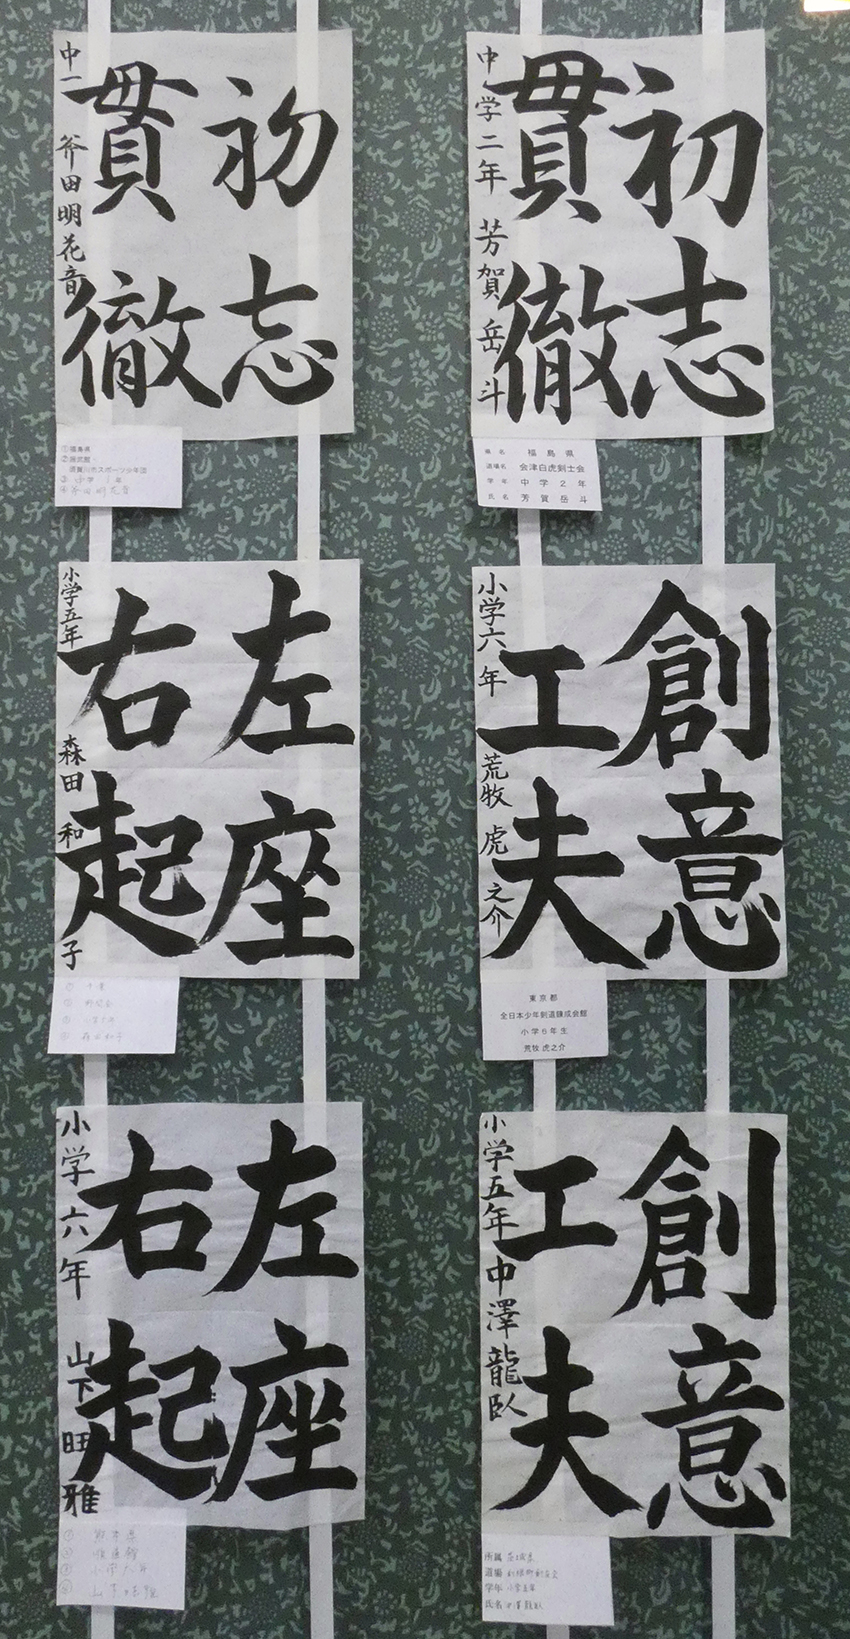 初志
貫徹
中学二年 芳賀岳斗
県名 福島県
道場名 会津白虎剣士会
学年 中学2年
氏名 芳賀岳斗
初志
貫徹
中一 斧田明花音
①福島県
②振武館・
須賀川市スポーツ少年団
③中学1年
④斧田明花音
創意
工夫
小学六年 荒牧虎之介
東京都
全日本少年剣道錬成会館
小学6年生
荒牧虎之介
左座
右起
小学五年 森田和子
① 千葉
④ 森田和子
創意
工夫
小学五年 中澤龍臥
所属 茨城県
道場
学年 小学五年
氏名 中澤龍臥
左座
右起
小学六年 山下旺雅
①
②
③ 小学六年
④ 山下旺雅